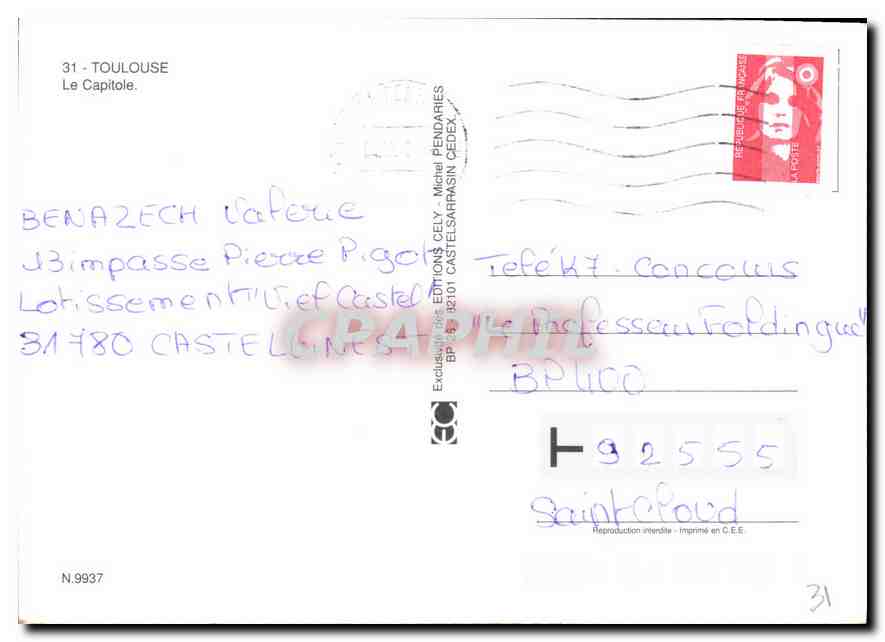 31 - TOULOUSE
Le Capitole.
BENAZECH Valerie
13 impasse Pierre Pigot
Lotissement "Vief Castel"
31780 CASTELGINEST
Exclusivité des EDITIONS CELY - Michel PENDARIES
BP 28 - 82101 CASTELSARRASIN CEDEX
RÉPUBLIQUE FRANÇAISE
LA POSTE
Télé K7. Concours
"Le Professeur Foldingue"
BP 400
92555
Saint Cloud
Reproduction interdite - Imprimé en C.E.E.
CPAPHIL
N.9937
31